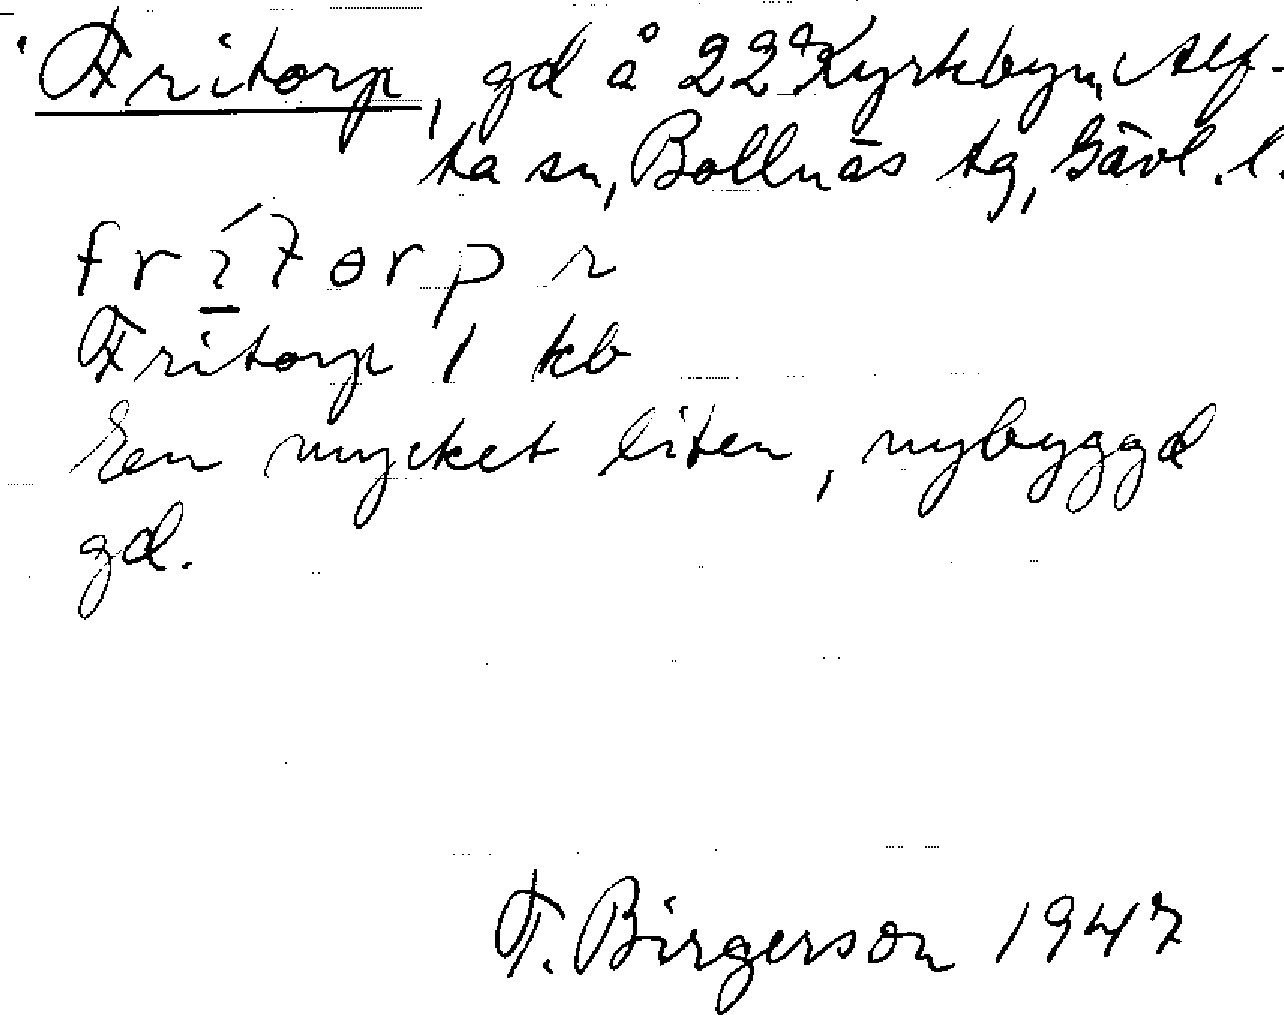 Fritorp, gd å 22ª Kyrkbyn, Alf-
ta sn, Bollnäs tg, Gävl. l.
Fritorp 1 kb
En mycket liten, nybyggd
gd.
F. Birgerson 1947